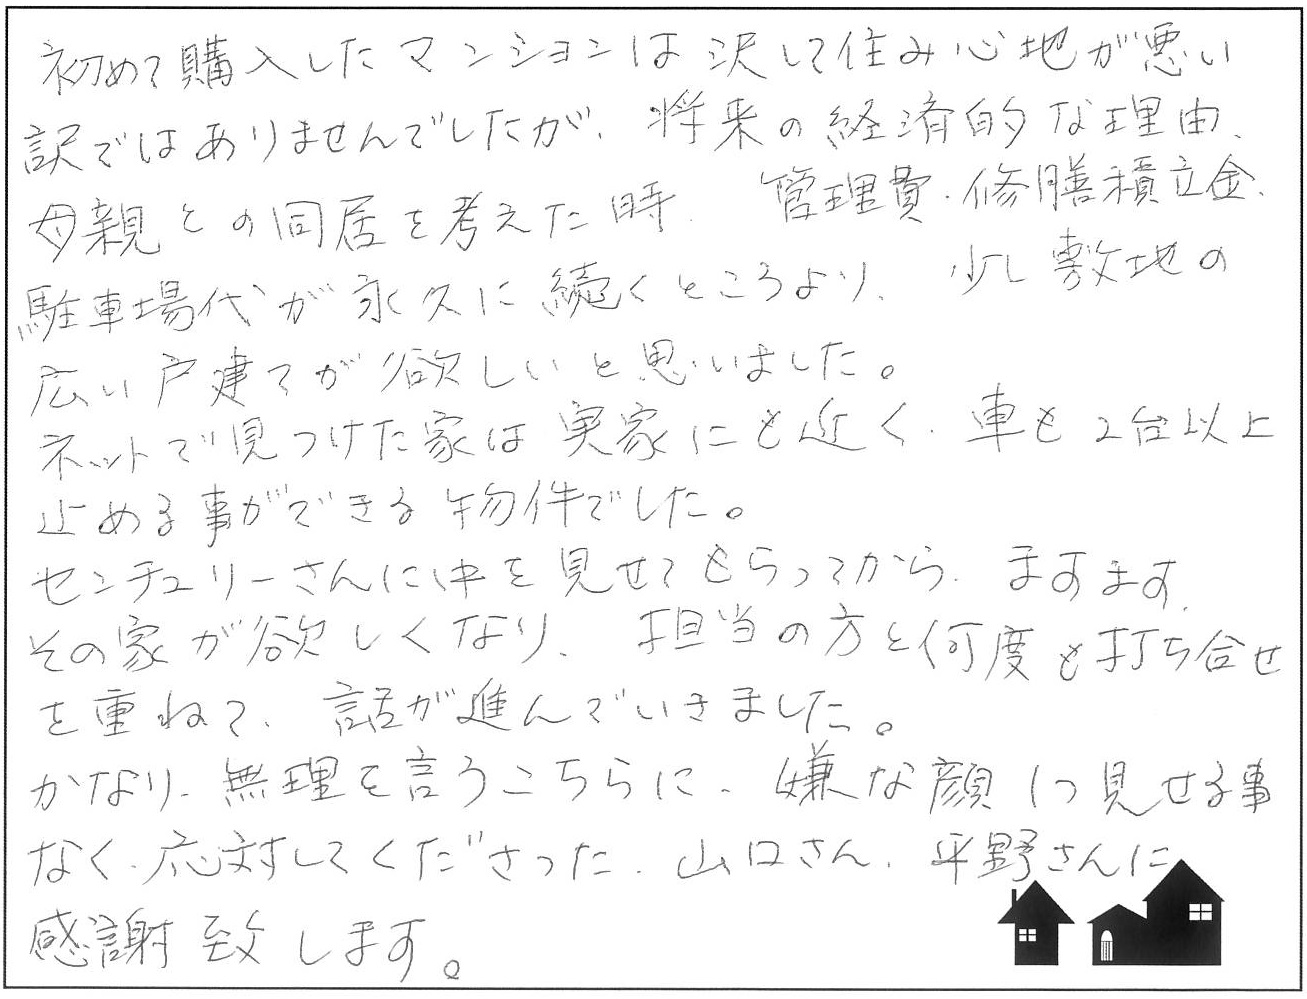 初めて購入したマンションは決して住み心地が悪い
訳ではありませんでしたが、将来の経済的な理由、
母親との同居を考えた時、管理費・修膳積立金、
駐車場代が永久に続くところより、少し敷地の
広い戸建てが欲しいと思いました。
ネットで見つけた家は実家にも近く、車も2台以上
止める事ができる物件でした。
センチュリーさんに中を見せてもらってから、ますます、
その家が欲しくなり、担当の方と何度も打ち合せ
を重ねて、話が進んでいきました。
かなり、無理を言うこちらに、嫌な顔1つ見せる事
なく、応対してくださった、山口さん、平野さんに
感謝致します。